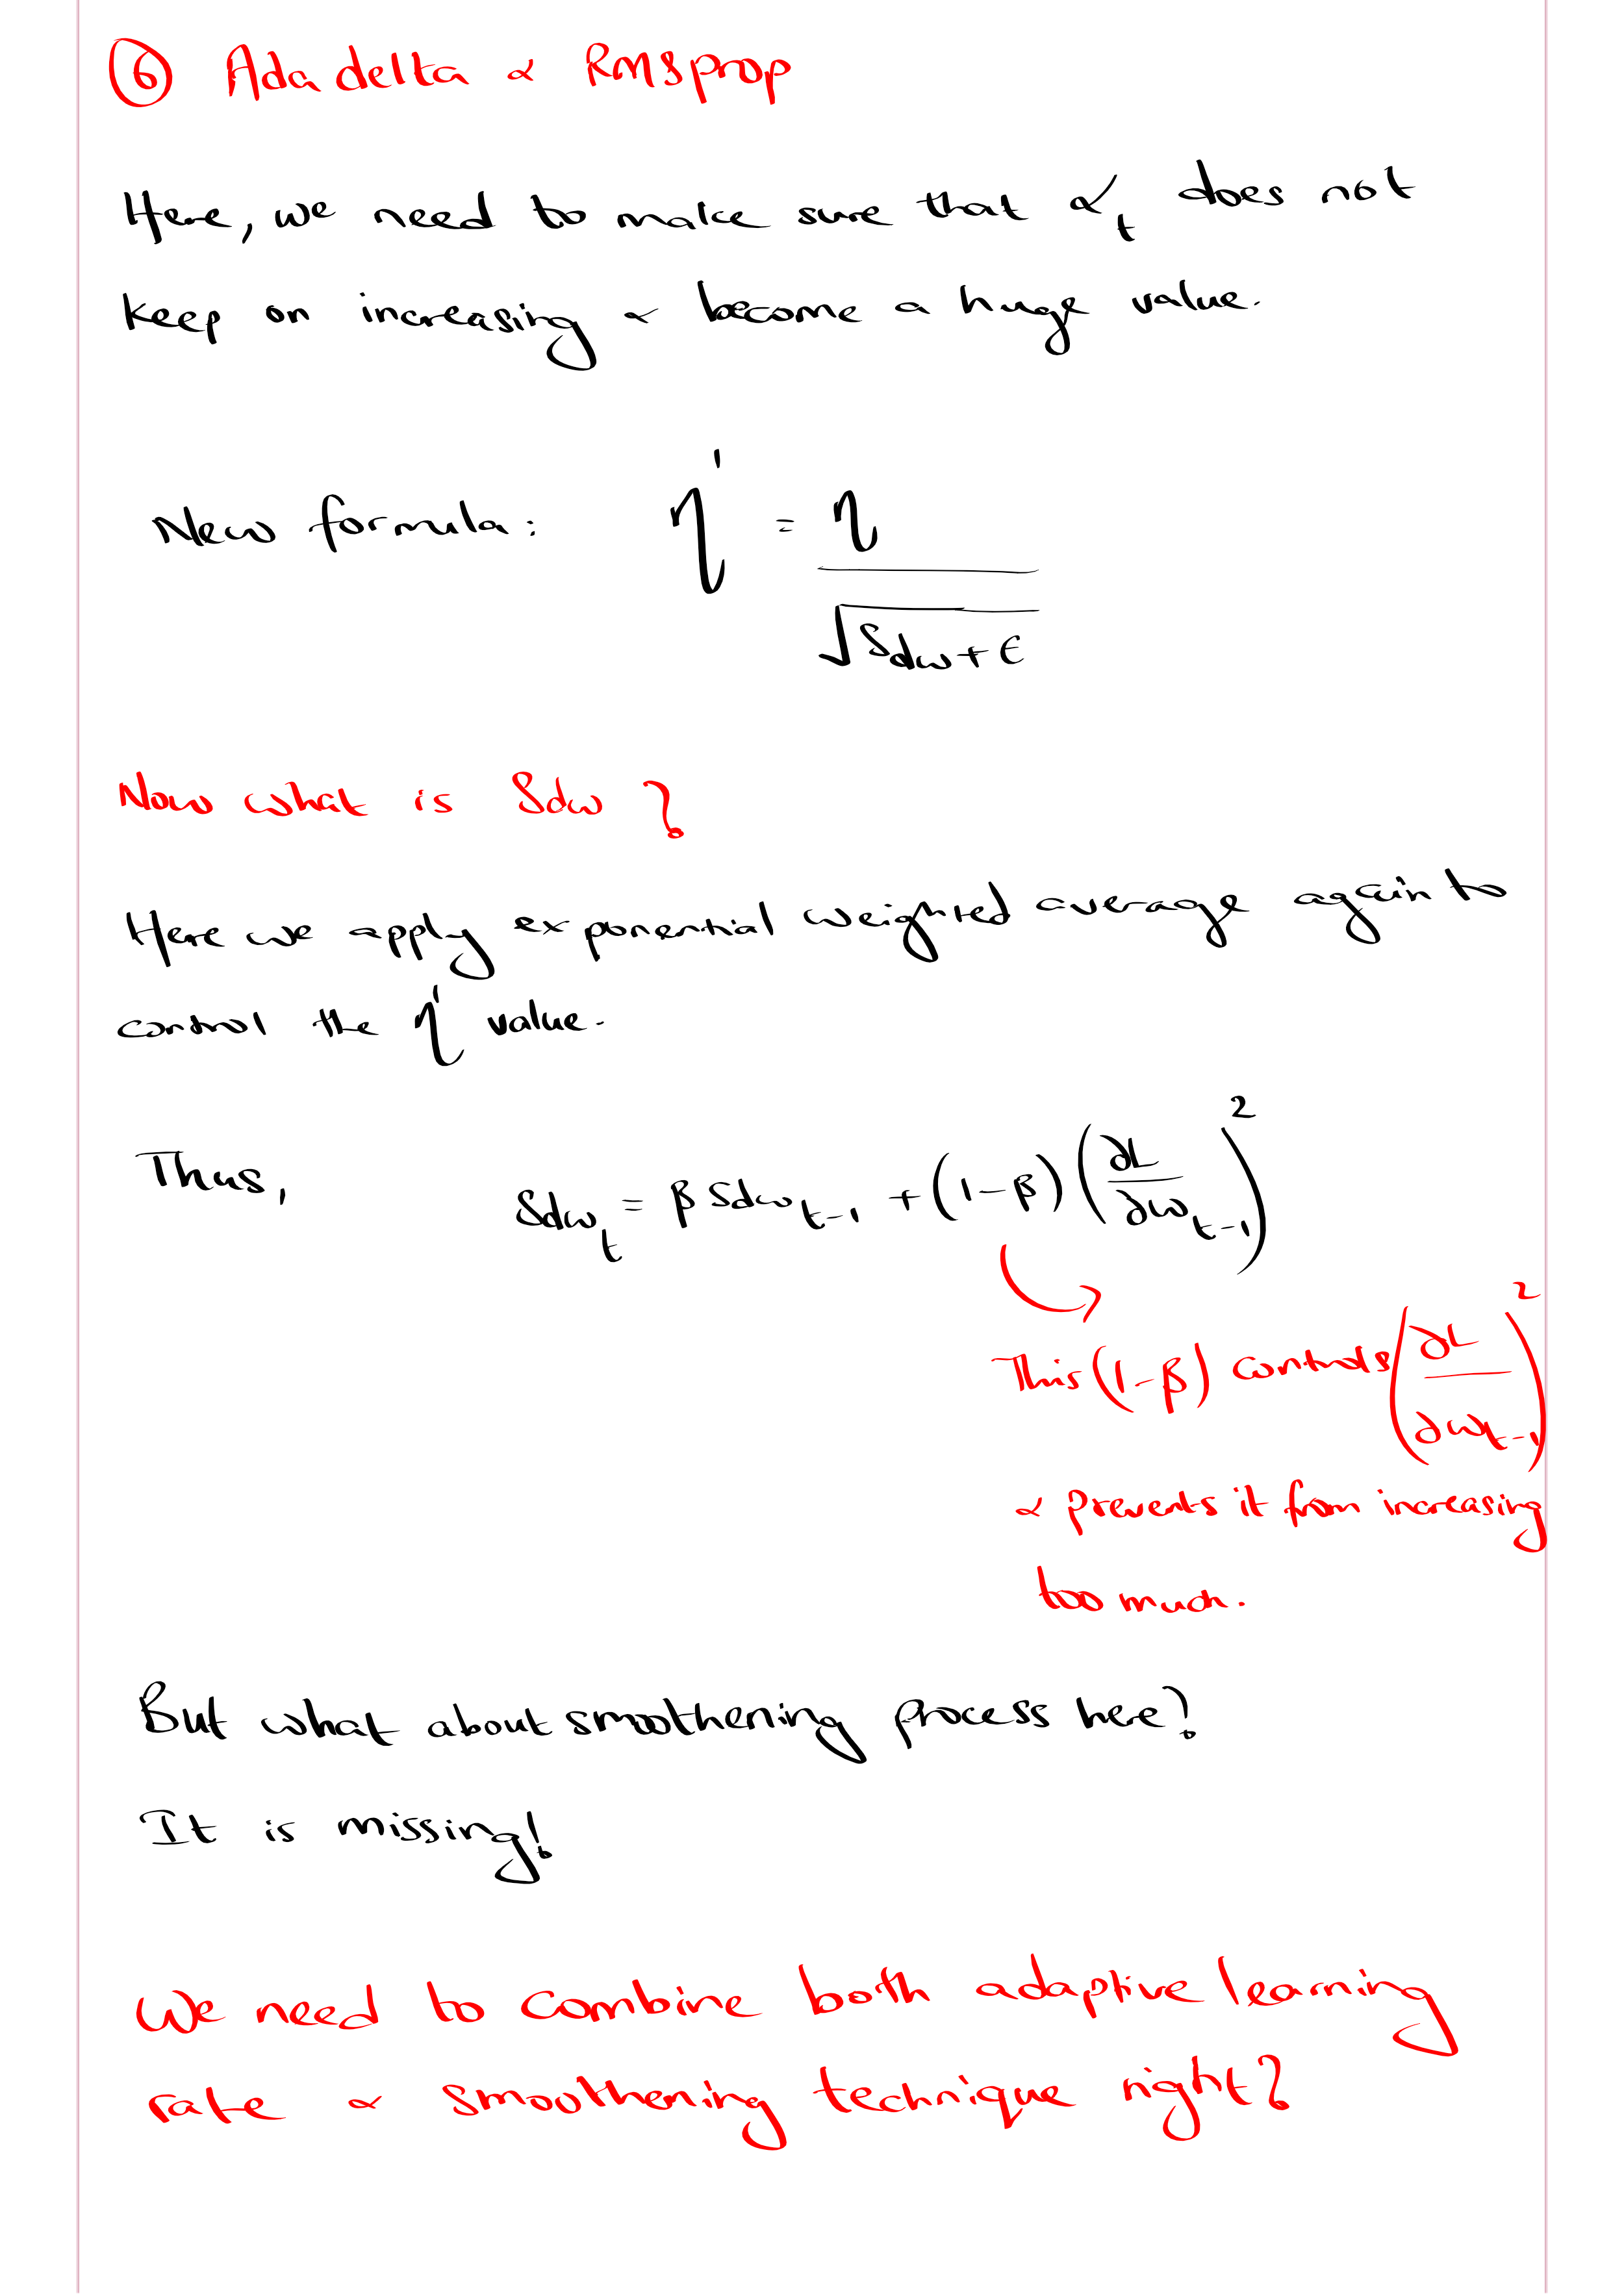 ⑥ Ada delta & RMSprop
Here, we need to make sure that α_t does not
keep on increasing & become a huge value.
New formula: η' = η / √(Sdw + ε)
Now what is Sdw ?
Here we apply exponential weighted average again to
control the η' value.
Thus, Sdw_t = β Sdw_{t-1} + (1-β) (∂L/∂w_{t-1})²
This (1-β) controls (∂L/∂w_{t-1})²
& prevents it from increasing
too much.
But what about smoothening process here?
It is missing!
We need to combine both adaptive learning
rate & smoothening technique right?